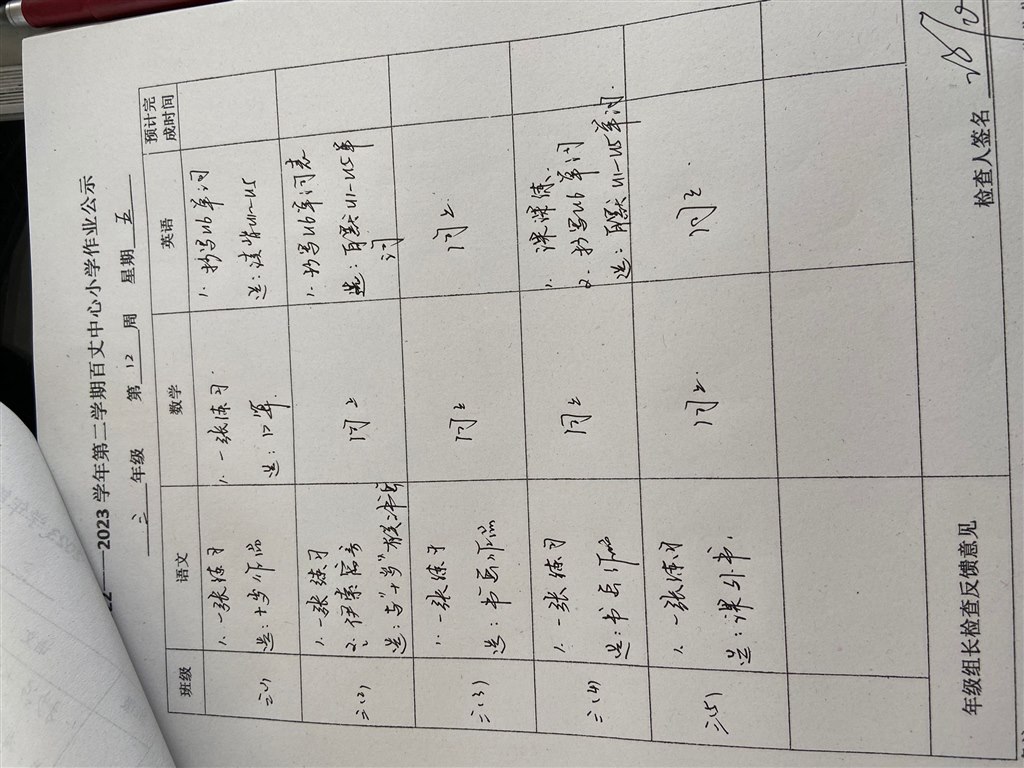 2023 学年第二学期百丈中心小学作业公示
三 年级 第 12 周 星期 五
班级 语文 数学 英语 预计完成时间
三(1)
1. 一张练习
选：十岁作品
1. 一张练习.
选：口算
1. 抄写U6单词
选：读背U1-U5
三(2)
1. 一张练习
2. 伊索寓言
同上
1. 抄写U6单词表
选：自默U1-U5单词
三(3)
1. 一张练习
选：书后作品
同上
同上
三(4)
1. 一张练习
选：书后作品
同上
1. 课课练
2. 抄写U6单词
选：自默U1-U5单词.
三(5)
1. 一张练习
选：课外书.
同上.
同上
年级组长检查反馈意见
检查人签名